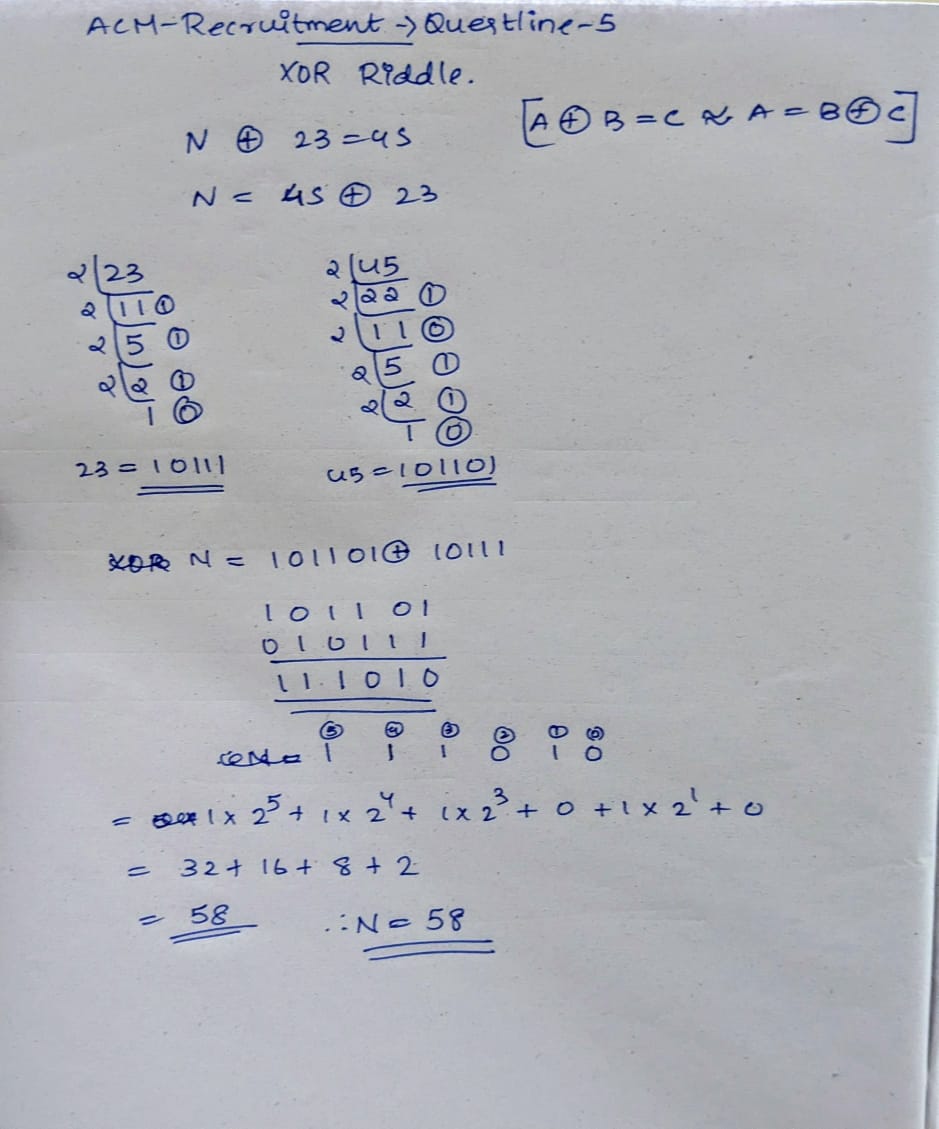 ACM-Recruitment → Questline-5
XOR Riddle.
[A ⊕ B = C ≈ A = B ⊕ C]
N ⊕ 23 = 45
N = 45 ⊕ 23
2 | 23
2 | 11 ①
2 | 5 ①
2 | 2 ①
1 ⓪
23 = 10111
2 | 45
2 | 22 ①
2 | 11 ⓪
2 | 5 ①
2 | 2 ①
1 ⓪
45 = 101101
N = 101101 ⊕ 10111
1 0 1 1 0 1
0 1 0 1 1 1
1 1 1 0 1 0
⑤ ④ ③ ② ① ⓪
1 1 1 0 1 0
= 1 x 2⁵ + 1 x 2⁴ + 1 x 2³ + 0 + 1 x 2¹ + 0
= 32 + 16 + 8 + 2
= 58 ∴ N = 58